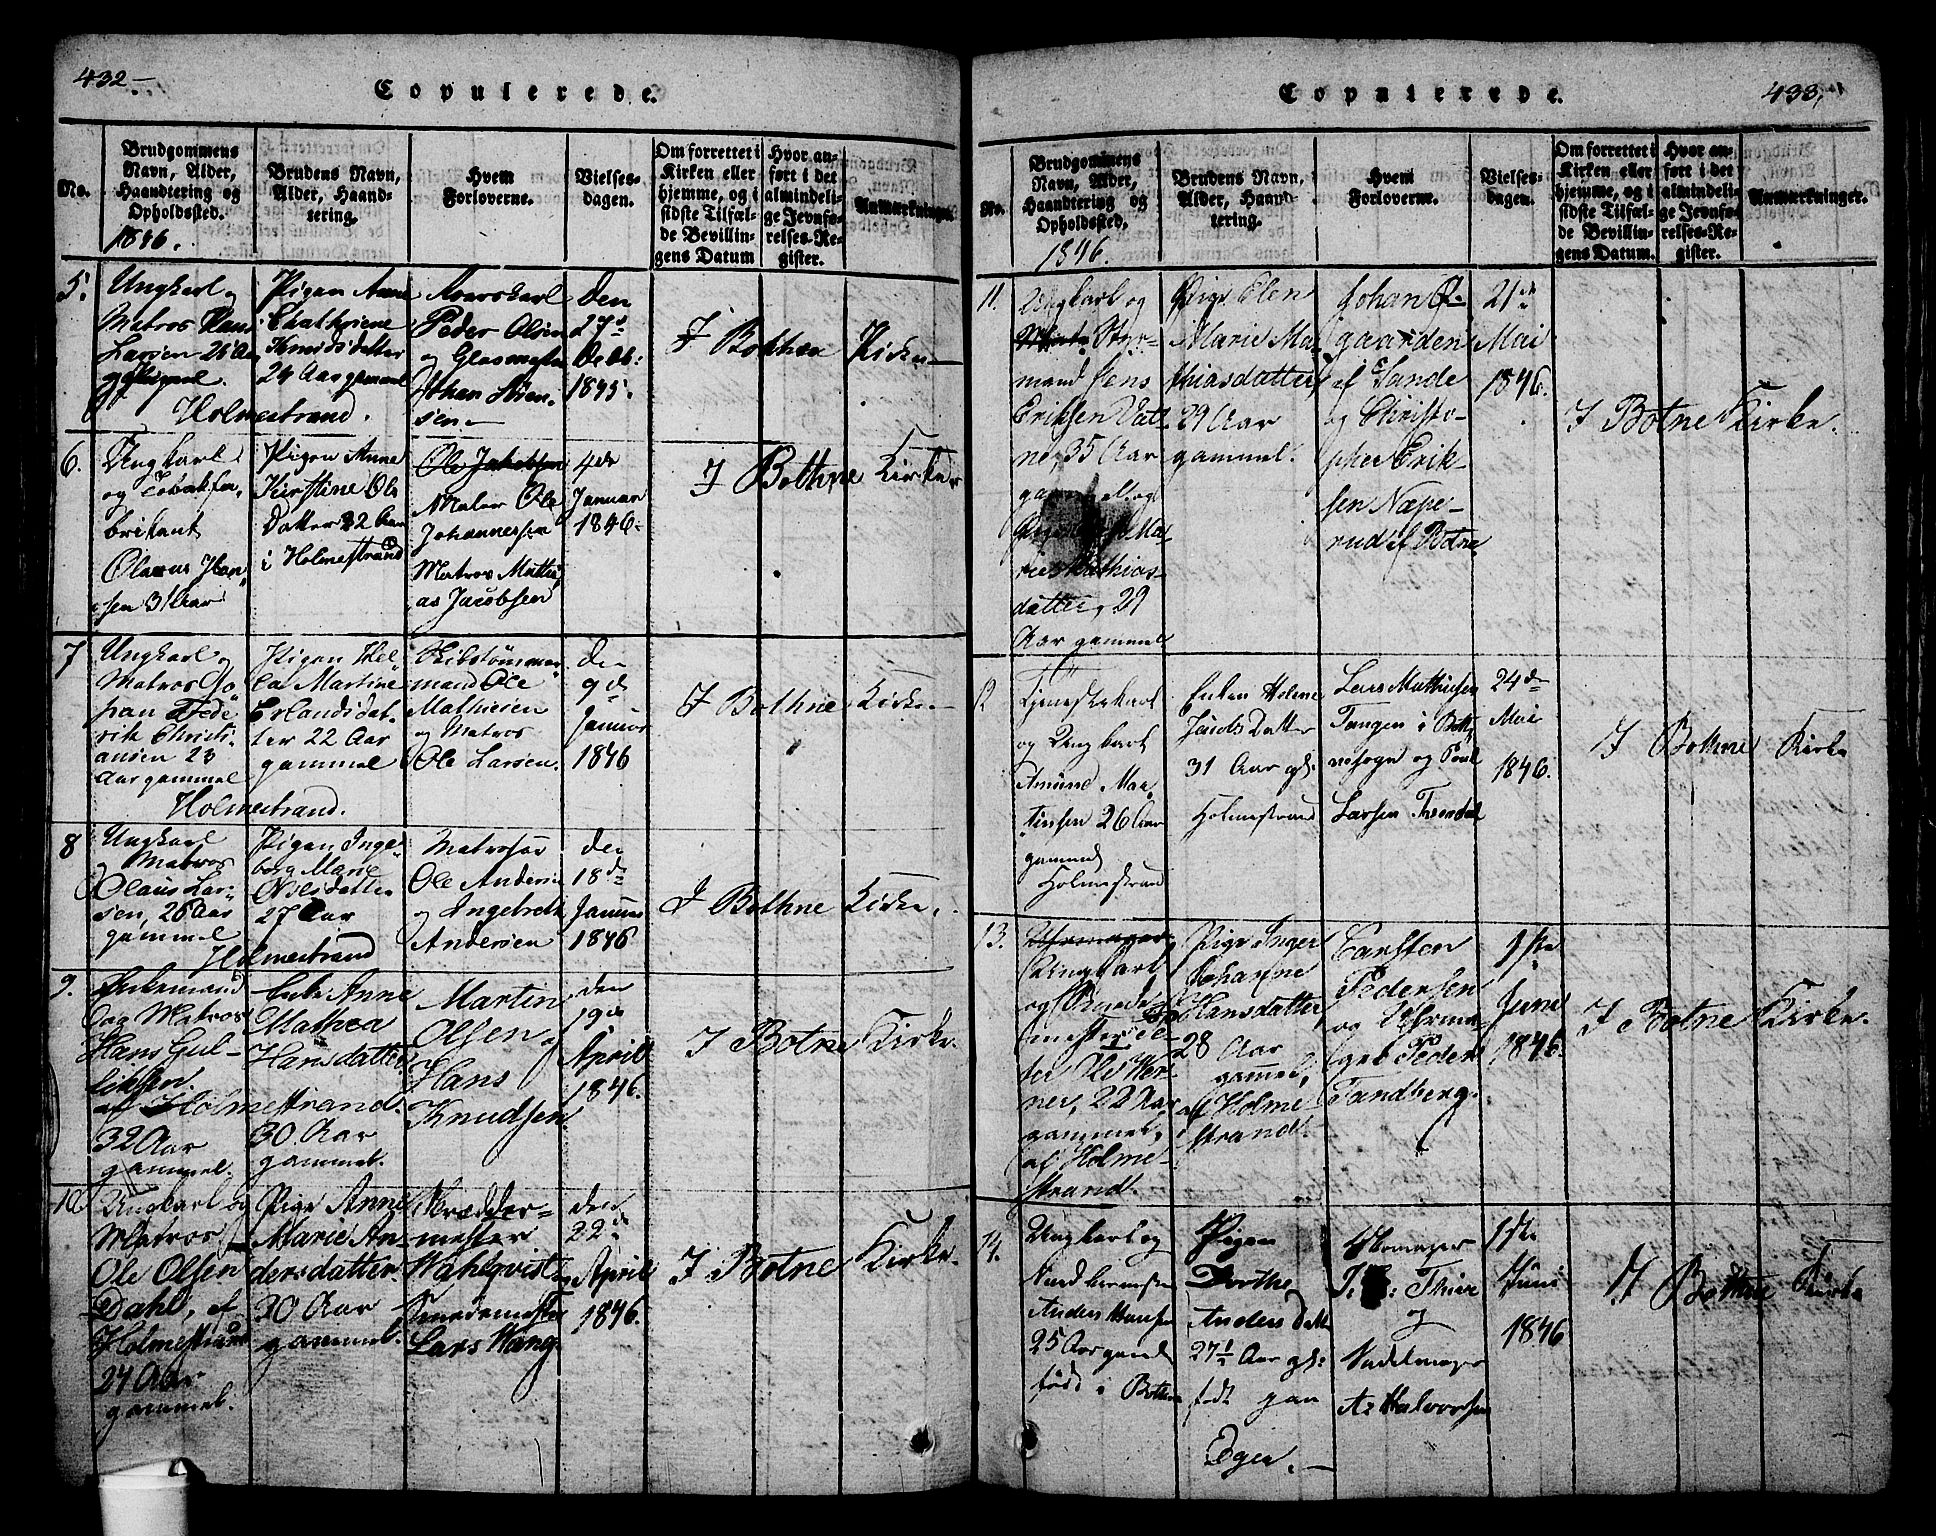 432.
Copulerede.
No.
Brudgommens
Navn, Alder,
Haandtering og
Opholdssted.
1846.
Brudens Navn,
Alder, Haand-
tering.
Hvem
Forloverne.
Vielses-
dagen.
Om forrettet i
Kirken eller
hjemme, og i
sidste Tilfæl-
de Bevillin-
gens Datum
Hvor an-
ført i det
almindeli-
ge Jevnfø-
relses-Re-
gister.
Anmærkninger.
5.
Ungkarl og
Matros Hans
Larsen 25 Aar
gammel.
Holmestrand.
Pigen Anne
Chathriene
Knudsdatter
24 Aar gammel
Peder Olsen
og Glasmester
Johan Sören-
sen
den
27d
Octb.
1845.
I Bothne Kirke
6.
Ungkarl
og Tobakfa-
brikant
Olaus Han-
sen 31 Aar
Pigen Anne
Kirstine Ols
Datter 22 Aar
i Holmestrand
Ole Jakobsen
Maler Ole
Johannessen
Matros Matti-
as Jacobsen
4de
Januar
1846.
I Bothne Kirke
7
Ungkarl og
Matros Jo-
han Fede-
rik Christi-
ansen 23
Aar gammel
Holmestrand.
Pigen Hel-
Martine
Erlandsdat-
ter 22 Aar
gammel
mand Ole
Mathisen
og Matros
Ole Larsen.
den
9de
Januar
1846
I Bothne Kirke
8
Ungkarl
og Matros
Olaus Lar-
sen, 26 Aar
gammel
Holmestrand
Pigen Inge-
borg Marie
Nilsdatter
27 Aar
Matroser
Ole Andersen
og Ingebreth
Andersen
den
18de
Januar
1846
I Bothne Kirke.
9.
Enkemand
og Matros
Hans Gul-
liksen
af Holmestrand.
32 Aar
gammel.
Enke Anne
Mathea
Hansdatter
30 Aar
gammel.
Martin
Olsen og
Hans
Knudsen.
den
19de
April
1846.
I Botne Kirke.
10
Ungkarl og
Matros
Ole Olsen
Dahl, af
Holmestrand
24 Aar
gammel.
Pige Anne
Marie An-
dersdatter.
30 Aar
gammel.
Skrædder-
mester
Wahlqvist
Smedemester
Lars Wang
den
22de
April
1846.
I Botne Kirke.
433.
Copulerede.
No.
Brudgommens
Navn, Alder,
Haandtering og
Opholdssted.
1846.
Brudens Navn,
Alder, Haand-
tering.
Hvem
Forloverne.
Vielses-
dagen.
Om forrettet i
Kirken eller
hjemme, og i
sidste Tilfæl-
de Bevillin-
gens Datum.
Hvor an-
ført i det
almindeli-
ge Jevnfø-
relses-Re-
gister.
Anmærkninger.
11.
Ungkarl og
Styr-
mand Jens
Eriksen Vatt-
ne, 35 Aar
gammel. og
Ma-
rie Mathias-
datter, 29
Aar gammel
Pige Elen
Marie Ma-
thiasdatter,
29 Aar
gammel.
Johan
gaarden
af Sande
og Christo-
pher Erik-
sen Næpe-
rud af Botne
21de
Mai
1846.
I Botne Kirke.
12
Tjenestekarl
og Ungkarl
Amund Mar-
tinsen 26 Aar
gammel
Holmestrand
Enken Helene
Jacobs Datter
31 Aar gl:
Holmestrand
Lars Mathiesen
Tangen i Both-
nesogn og Poul
Larsen
24de
Mai
1846.
I Bothne Kirke
13.
Ungkarl
og
mester
Ole Wer-
ner, 22 Aar
gammel,
af Holme-
strand.
Pige Inger
Johanne
Hansdatter
28 Aar
gammel,
af Holme-
strand.
Carsten
Pedersen
og Uhrma-
ger Peder
Sandberg.
1ste
Juni
1846.
I Botne Kirke.
14.
Ungkarl og
Anders Hansen
25 Aar gammel
född i Bothne
Pigen
Dorthe
Anders Datter
27½ Aar gl:
född paa
Eger.
Skomager
Thier
og
Nadelmager
A: Halvorsen
1ste
Juni
1846
I Bothne Kirke